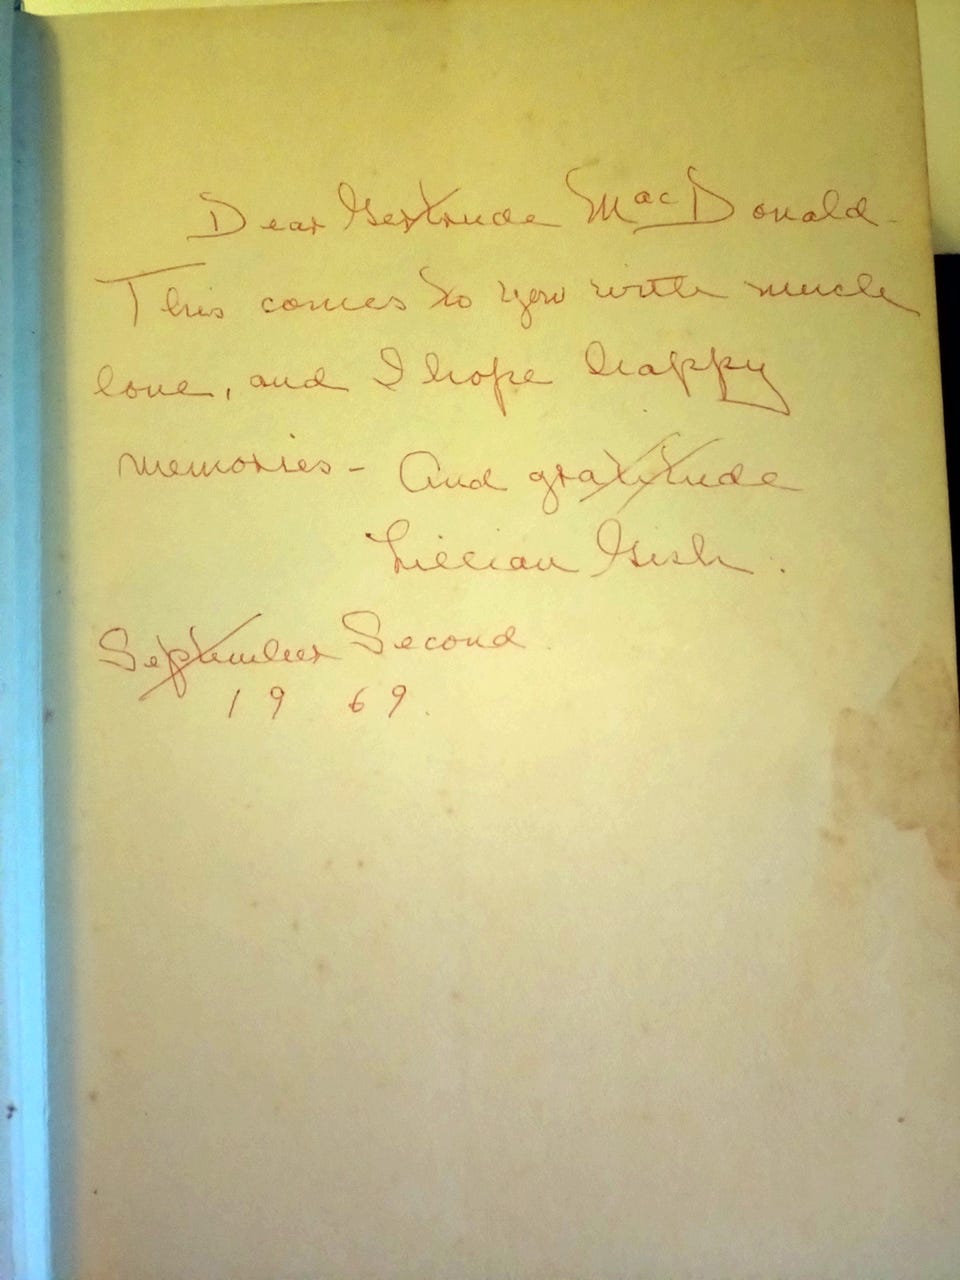 Dear Gertrude MacDonald -
This comes to you with much
love, and I hope happy
memories - And gratitude
Lillian Gish.
September Second
1969.